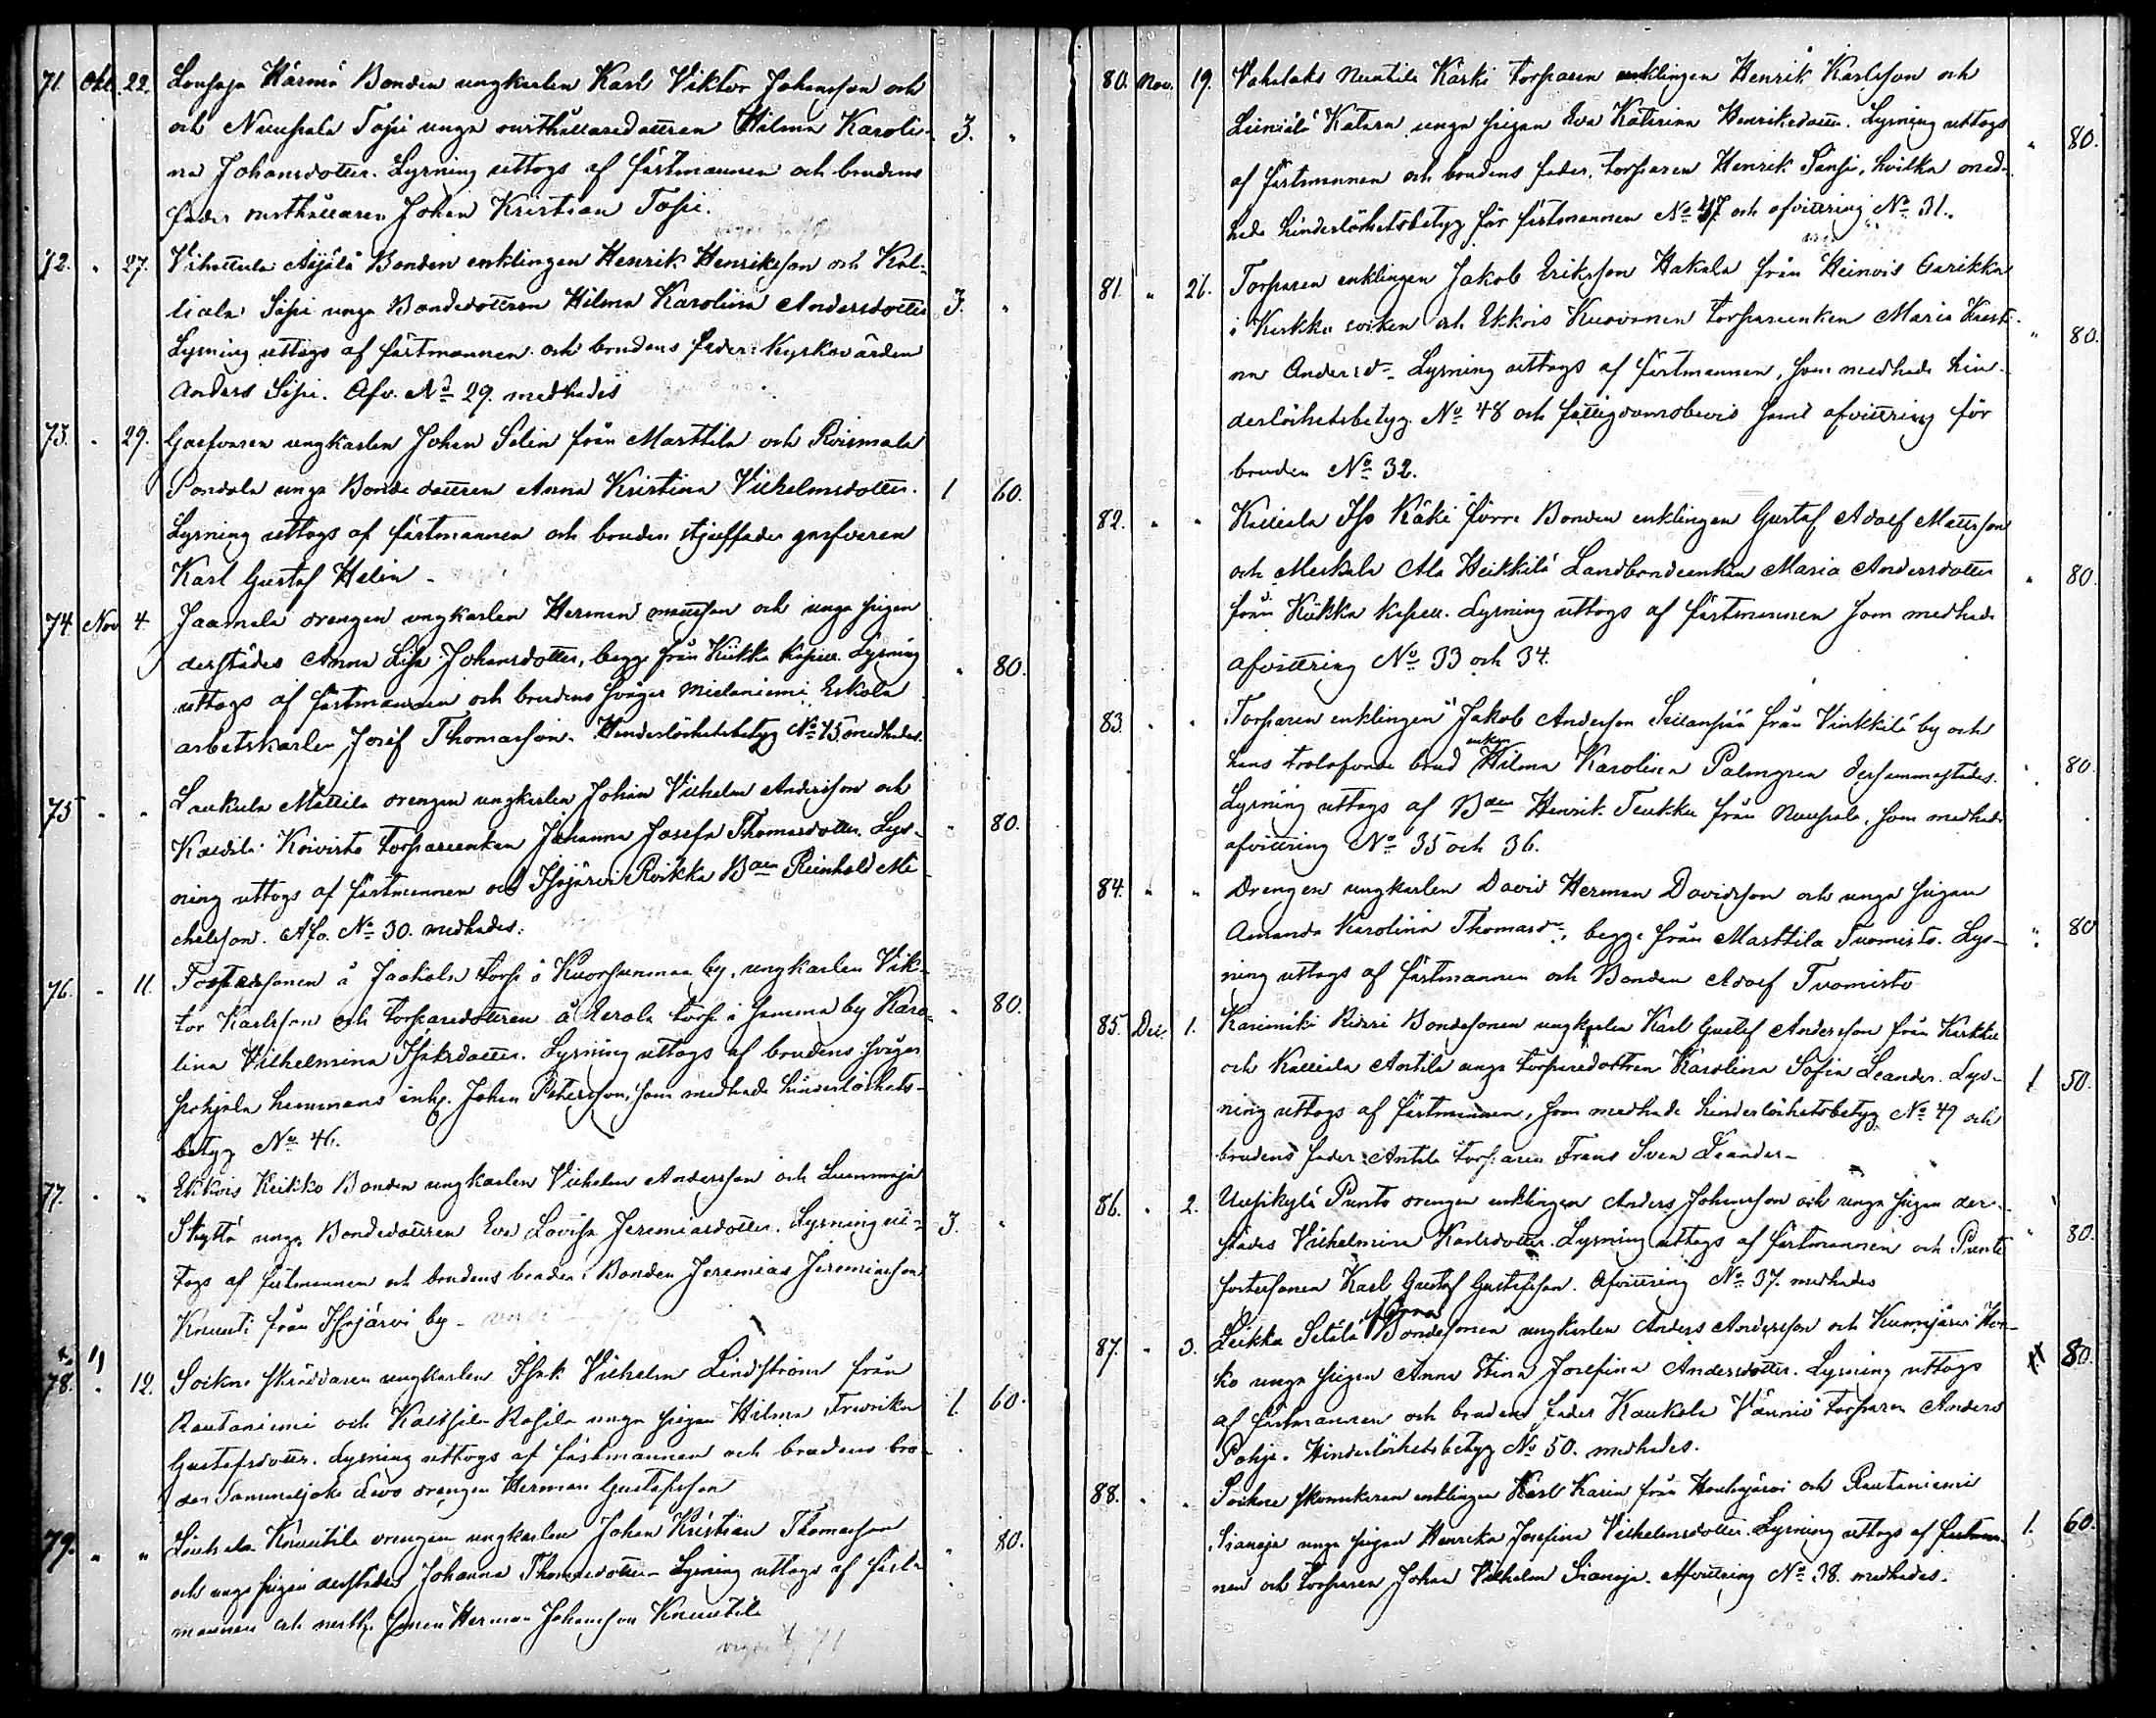 71. Okt. 22. Lousaja Härmä Bonden ungkarlen Karl Viktor Johansson och
och Nuupala Topi unga rusthållaredottren Hilma Karoli- 3. "
na Johansdotter. Lysning uttogs af fästmannen och brudens
fader rusthållaren Johan Kristian Topi.
72. " 27. Äijälä Bonden enklingen Henrik Henriksson och Kal-
liala Sipi unga Bondedottren Hilma Karolina Andersdotter 3. "
Lysning uttogs af fästmannen och brudens fader: Kyrkovärden
Anders Sipi. Afv. No 29. medhades
73. " 29. Garfvaren ungkarlen Johan Selin från Marttila och Roismala
Pondola unga Bonde dottren Anna Kristina Vilhelmsdotter. 1 60.
Lysning uttogs af fästmannen och brudens styffader garfvaren
Karl Gustaf Helin -
74 Nov 4. Jaamala drengen ungkarlen Herman Mattsson och unga pigan
derstädes Anna Lisa Johansdotter, begge från Kiikka kapell. Lysning " 80.
uttogs af fästmannen och brudens svåger Mielaniemi Eskola
arbetskarlen Josef Thomasson. Hinderlöshetsbetyg No 45. medhades.
75 " " Laukula Mattila drengen ungkarlen Johan Vilhelm Andersson och
Koivisto torpareenkan Johanna Josefa Thomasdotter. Lys- " 80.
ning uttogs af fästmannen och Isojärvi Roikka Bden Reinhold Mi
chelsson. Afv. No 30. medhades.
76. " 11. Torparsonen å Jaakola torp i Kuorsunmaa by, ungkarlen Vik-
tor Karlsson och torparedottren å Eerola torp i samma by Karo- " 80.
lina Vilhelmina Isaksdotter. Lysning uttogs af brudens svåger
Pohjola hemmans inh. Johan Petersson, som medhade hinderlöshets-
betyg No 46.
77. " " Ekkois Keikko Bonden ungkarlen Vilhelm Andersson och Lummaja
Skyttä unga Bondedottren Eva Lovisa Jeremiasdotter. Lysning ut- 3. "
togs af fästmannen och brudens broder: Bonden Jeremias Jeremiasson
Knuuti från Isojärvi by -
78. " 12. Sockne skräddaren ungkarlen Isak Vilhelm Lindström från
Rautaniemi och Rosila unga pigan Hilma Fredrika 1. 60.
Gustafsdotter. Lysning uttogs af fästmannen och brudens bro-
der Sammaljoki Levo drengen Herman Gustafsson
79. " " Knuutila drengen ungkarlen Johan Kristian Thomasson " 80.
och unga pigan derstädes Johanna Thomasdotter - Lysning uttogs af fäst-
mannen och rusth. sonen Herman Johansson Knuutila
80. Nov. 19. Vahalaks Nuutila Kärki torparen enklingen Henrik Karlsson och
Liiniälä Katara unga pigan Eva Katarina Henriksdotter. Lysning uttogs " 80.
af fästmannen och brudens fader, torparen Henrik Sänpi, hvilka med-
hade hinderlöshetsbetyg för fästmannen No 47 och afvittring No 31.
81. " 26. Torparen enklingen Jakob Eriksson Hakala från Heinois Carikka
i Karkku socken och Ekkois Kuovonen torpareenkan Maria Kristi- " 80.
na Andersdr - Lysning uttogs af fästmannen, som medhade hin-
derlöshetsbetyg No 48 och fattigdomsbevis samt afvittring för
bruden No 32.
82. " " Kalliala Iso Käki förre Bonden enklingen Gustaf Adolf Mattsson
och Meskala Ala Heikkilä Landbondeenkan Maria Andersdotter " 80.
från Kiikka kapell. Lysning uttogs af fästmannen som medhade
afvittring No 33 och 34.
83. " " Torparen enklingen Jakob Andersson Sillanpää från Vinkkilä by och
hans trolofvade brud enkan Hilma Karolina Palmgren dersammastädes. " 80.
Lysning uttogs af Bden Henrik Teukku från Nuupala, som medhade
afvittring No 35 och 36.
84. " " Drengen ungkarlen David Herman Davidsson och unga pigan
Amanda Karolina Thomasdr, begge från Marttila Tuomisto. Lys- " 80
ning uttogs af fästmannen och Bonden Adolf Tuomisto
85. Dec. 1. Karimäki Bondesonen ungkarlen Karl Gustaf Andersson från Karkku
och Kalliala Antila unga torparedottren Karolina Sofia Leander. Lys- 1 50.
ning uttogs af fästmannen, som medhade hinderlöshetsbetyg No 49 och
brudens fader: Antila torparen Frans Sven Leander -
86. " 2. Uusikylä Punto drengen enklingen Anders Johansson och unga pigan der-
städes Vilhelmina Karlsdotter. Lysning uttogs af fästmannen och Punto " 80.
fostersonen Karl Gustaf Gustafsson. Afvittring No 37. medhades
87. " 3. Leikku Setälä Bondesonen ungkarlen Anders Andersson och Kunnjärvi
ko unga pigan Anna Stina Josefina Andersdotter. Lysning uttogs 80.
af fästmannen och brudens fader Kaukola Vännio torparen Anders
Pohja. Hinderlöshetsbetyg No 50. medhades.
88. " " Sockne skomakaren enklingen Karl Karin från Houhajärvi och Rautaniemi
Sianoja unga pigan Henrika Josefina Vilhelmsdotter. Lysning uttogs af fästman- 1. 60.
nen och torparen Johan Vilhelm Sianoja. Afvittring No 38. medhades.